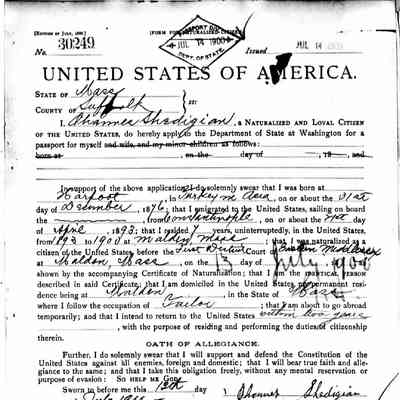 [EDITION OF JULY, 1888.]
[FORM FOR NATURALIZED CITIZEN.]
PASSPORT BUREAU
JUL 14 1900
DEPT. OF STATE.
No. 30249
Issued JUL 14 1900
UNITED STATES OF AMERICA.
STATE OF Mass
COUNTY OF Suffolk } ss:
I, Ohannes Shedigian, a NATURALIZED AND LOYAL CITIZEN
OF THE UNITED STATES, do hereby apply to the Department of State at Washington for a
passport for myself and wife, and my minor children as follows:
born at , on the day of , 19 , and
In support of the above application, I do solemnly swear that I was born at
Harpoot, in Turkey in Asia, on or about the 31st
day of December, 1876; that I emigrated to the United States, sailing on board
the from Constantinople, on or about the
day of April, 1893; that I resided 7 years, uninterruptedly, in the United States,
from 1893 to 1900 at Malden, Mass; that I was naturalized as a
citizen of the United States, before the First District Court of Eastern Middlesex
at Maldon, Mass, on the 13 day of July, 1900, as
shown by the accompanying Certificate of Naturalization; that I am the IDENTICAL PERSON
described in said Certificate; that I am domiciled in the United States, my permanent resi-
dence being at Maldon, in the State of Mass,
where I follow the occupation of Tailor; that I am about to go abroad
temporarily; and that I intend to return to the United States within two years
, with the purpose of residing and performing the duties of citizenship
therein.
OATH OF ALLEGIANCE.
Further, I do solemnly swear that I will support and defend the Constitution of the
United States against all enemies, foreign and domestic; that I will bear true faith and alle-
giance to the same; and that I take this obligation freely, without any mental reservation or
purpose of evasion: SO HELP ME GOD.
Sworn to before me this 13th day
Ohannes Shedigian
July 1900